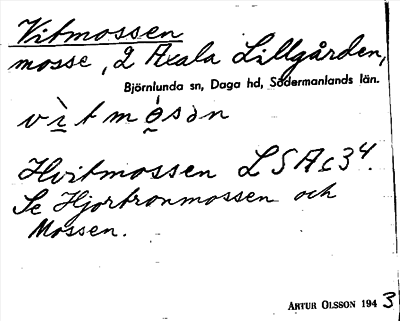 Vitmossen
mosse, 2 Axala Lillgården,
Björnlunda sn, Daga hd, Södermanlands län.
vìtmósən
Hvitmossen LSA c34.
Se Hjortronmossen och
Mossen.
ARTUR OLSSON 1943